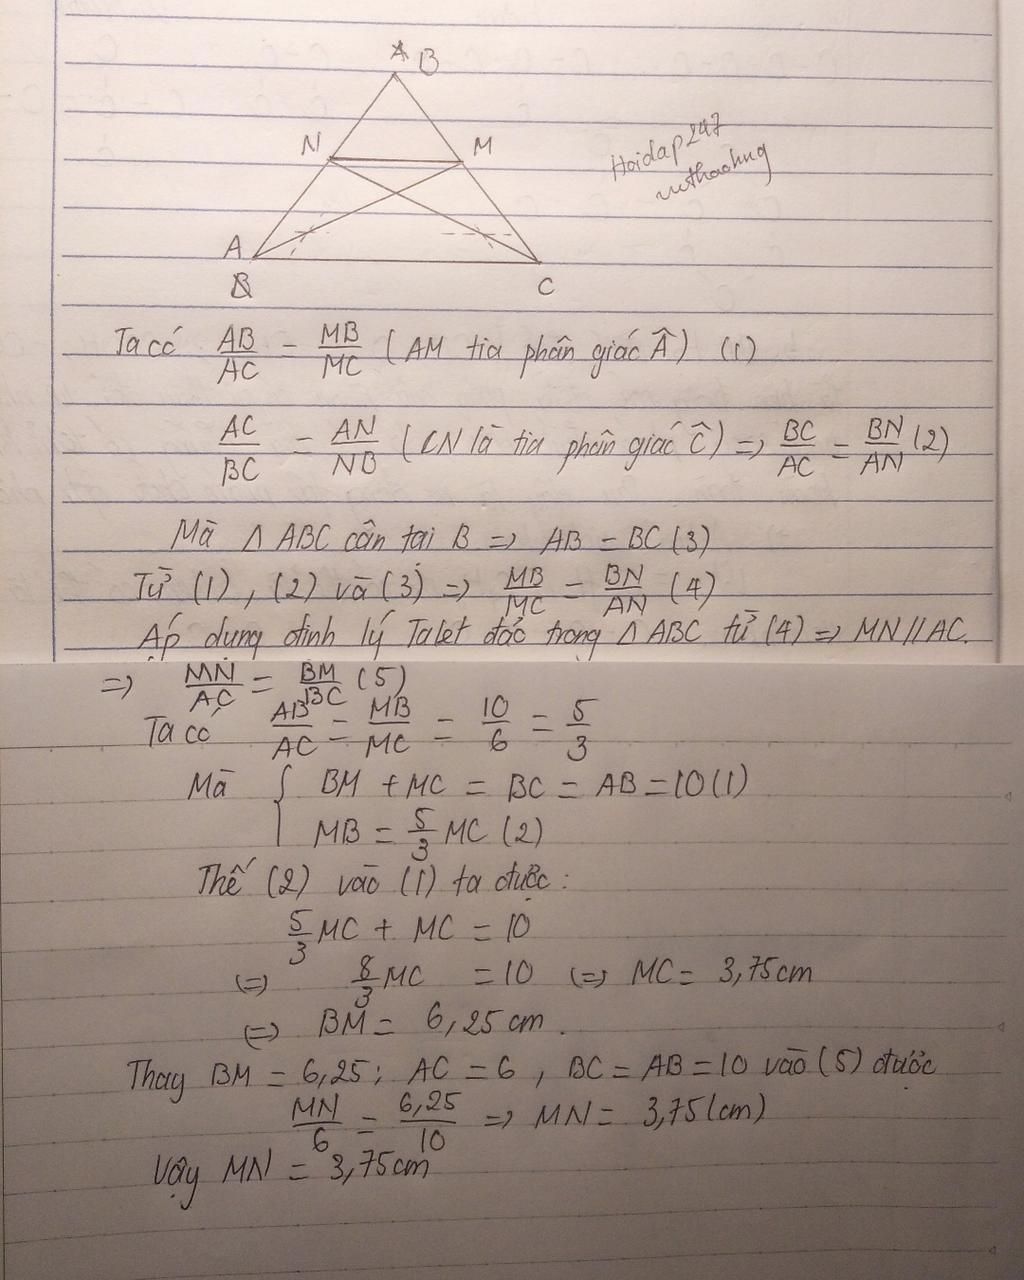 A B
N M
Hoidap247
vuthaohng
A
B C
Ta có AB/AC = MB/MC (AM tia phân giác Â) (1)
AC/BC = AN/NB (CN là tia phân giác Ĉ) => BC/AC = BN/AN (2)
Mà Δ ABC cân tại B => AB = BC (3)
Từ (1), (2) và (3) => MB/MC = BN/AN (4)
Áp dụng định lý Talet đảo trong Δ ABC từ (4) => MN // AC.
=> MN/AC = BM/BC (5)
Ta có AB/AC = MB/MC = 10/6 = 5/3
Mà { BM + MC = BC = AB = 10 (1)
MB = 5/3 MC (2)
Thế (2) vào (1) ta được:
5/3 MC + MC = 10
(=) 8/3 MC = 10 (=) MC = 3,75 cm
(=) BM = 6,25 cm.
Thay BM = 6,25; AC = 6, BC = AB = 10 vào (5) được
MN/6 = 6,25/10 => MN = 3,75 (cm)
Vậy MN = 3,75 cm